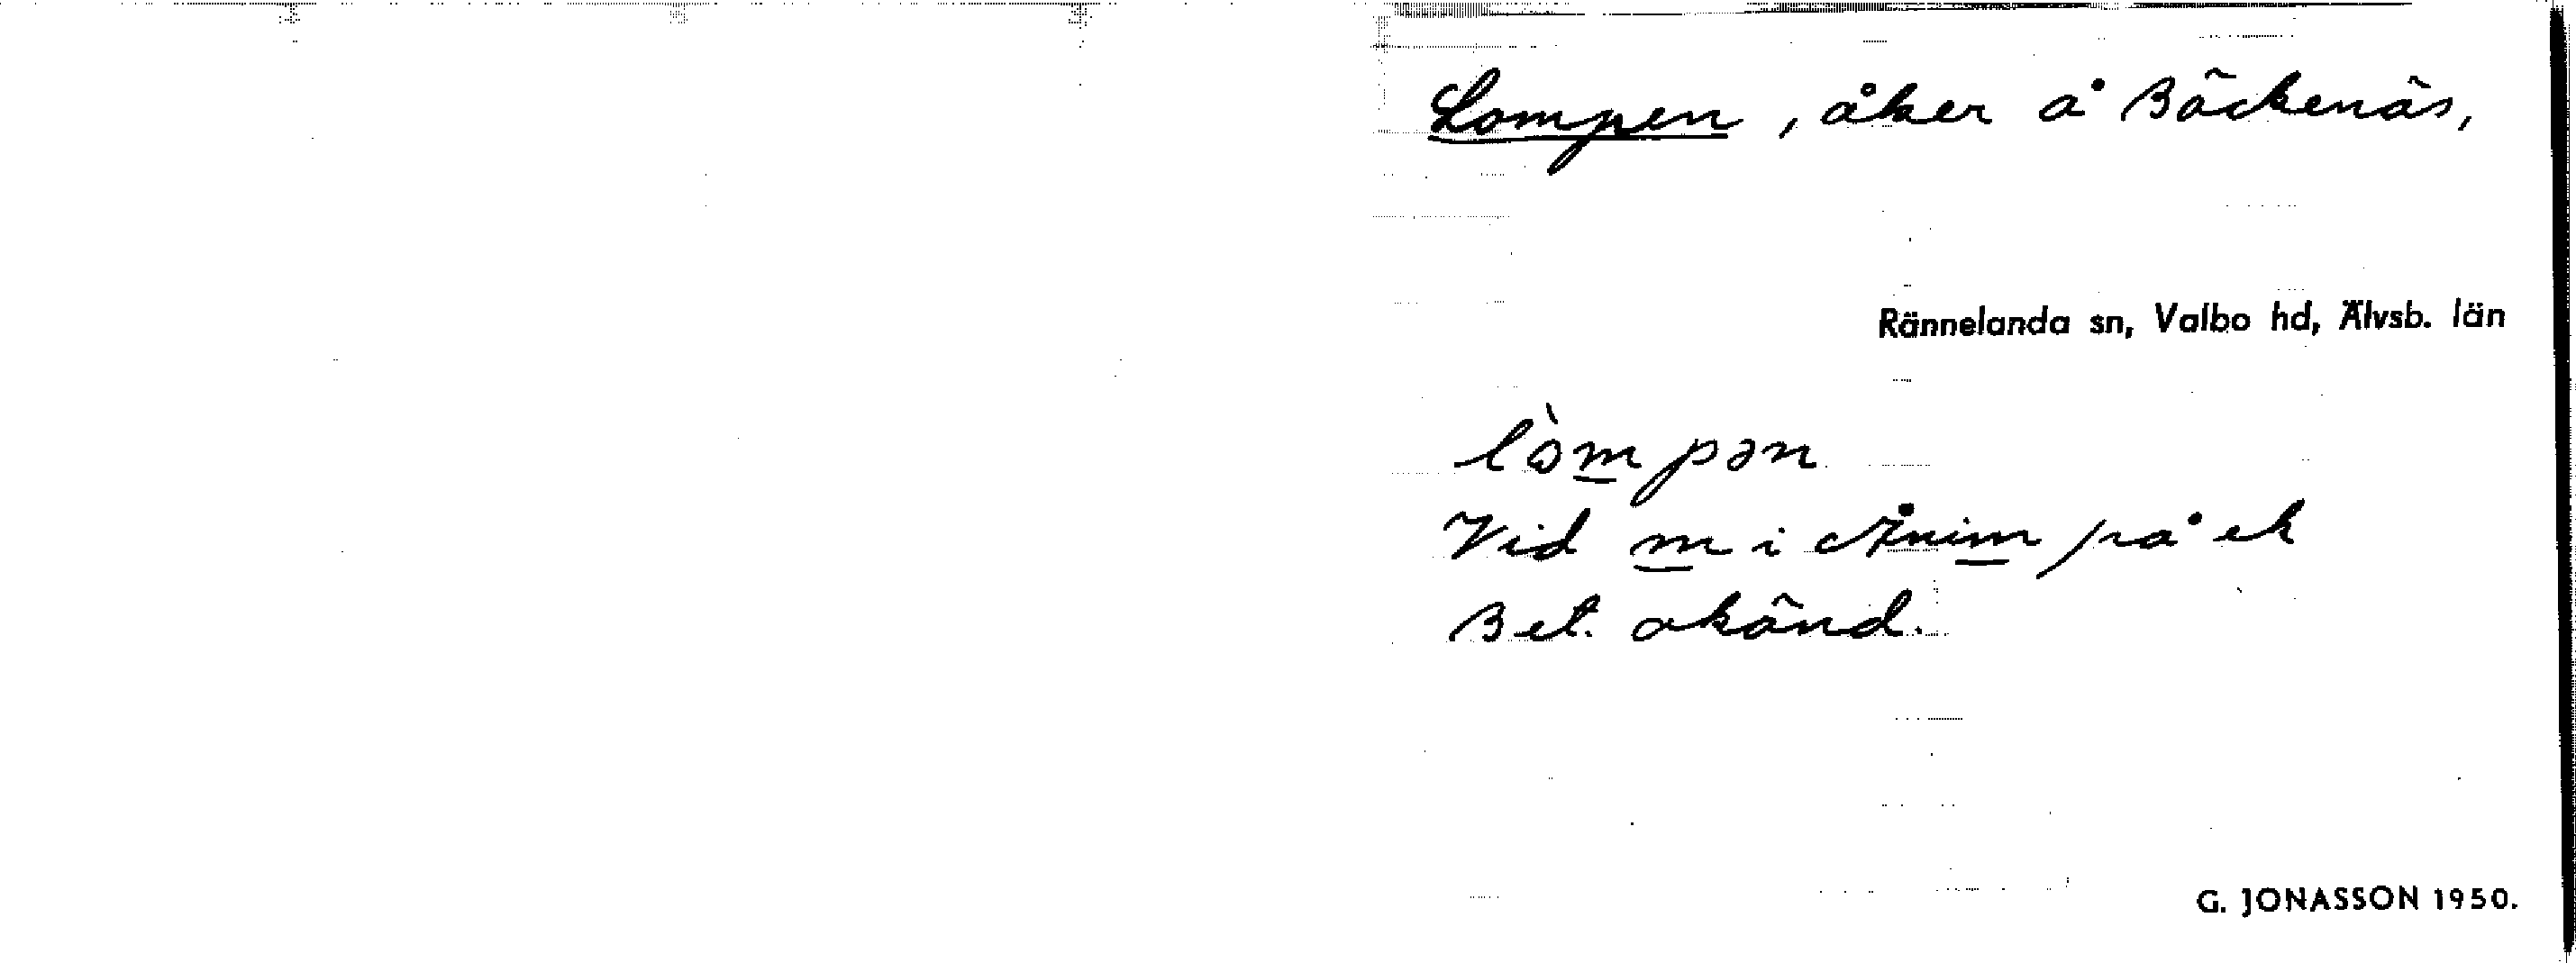 Lompen, åker å Bäckenäs,
Rännelanda sn, Valbo hd, Älvsb. län
lò̱mpən
Vid m i på ek
Bet. okänd.
G. JONASSON 1950.